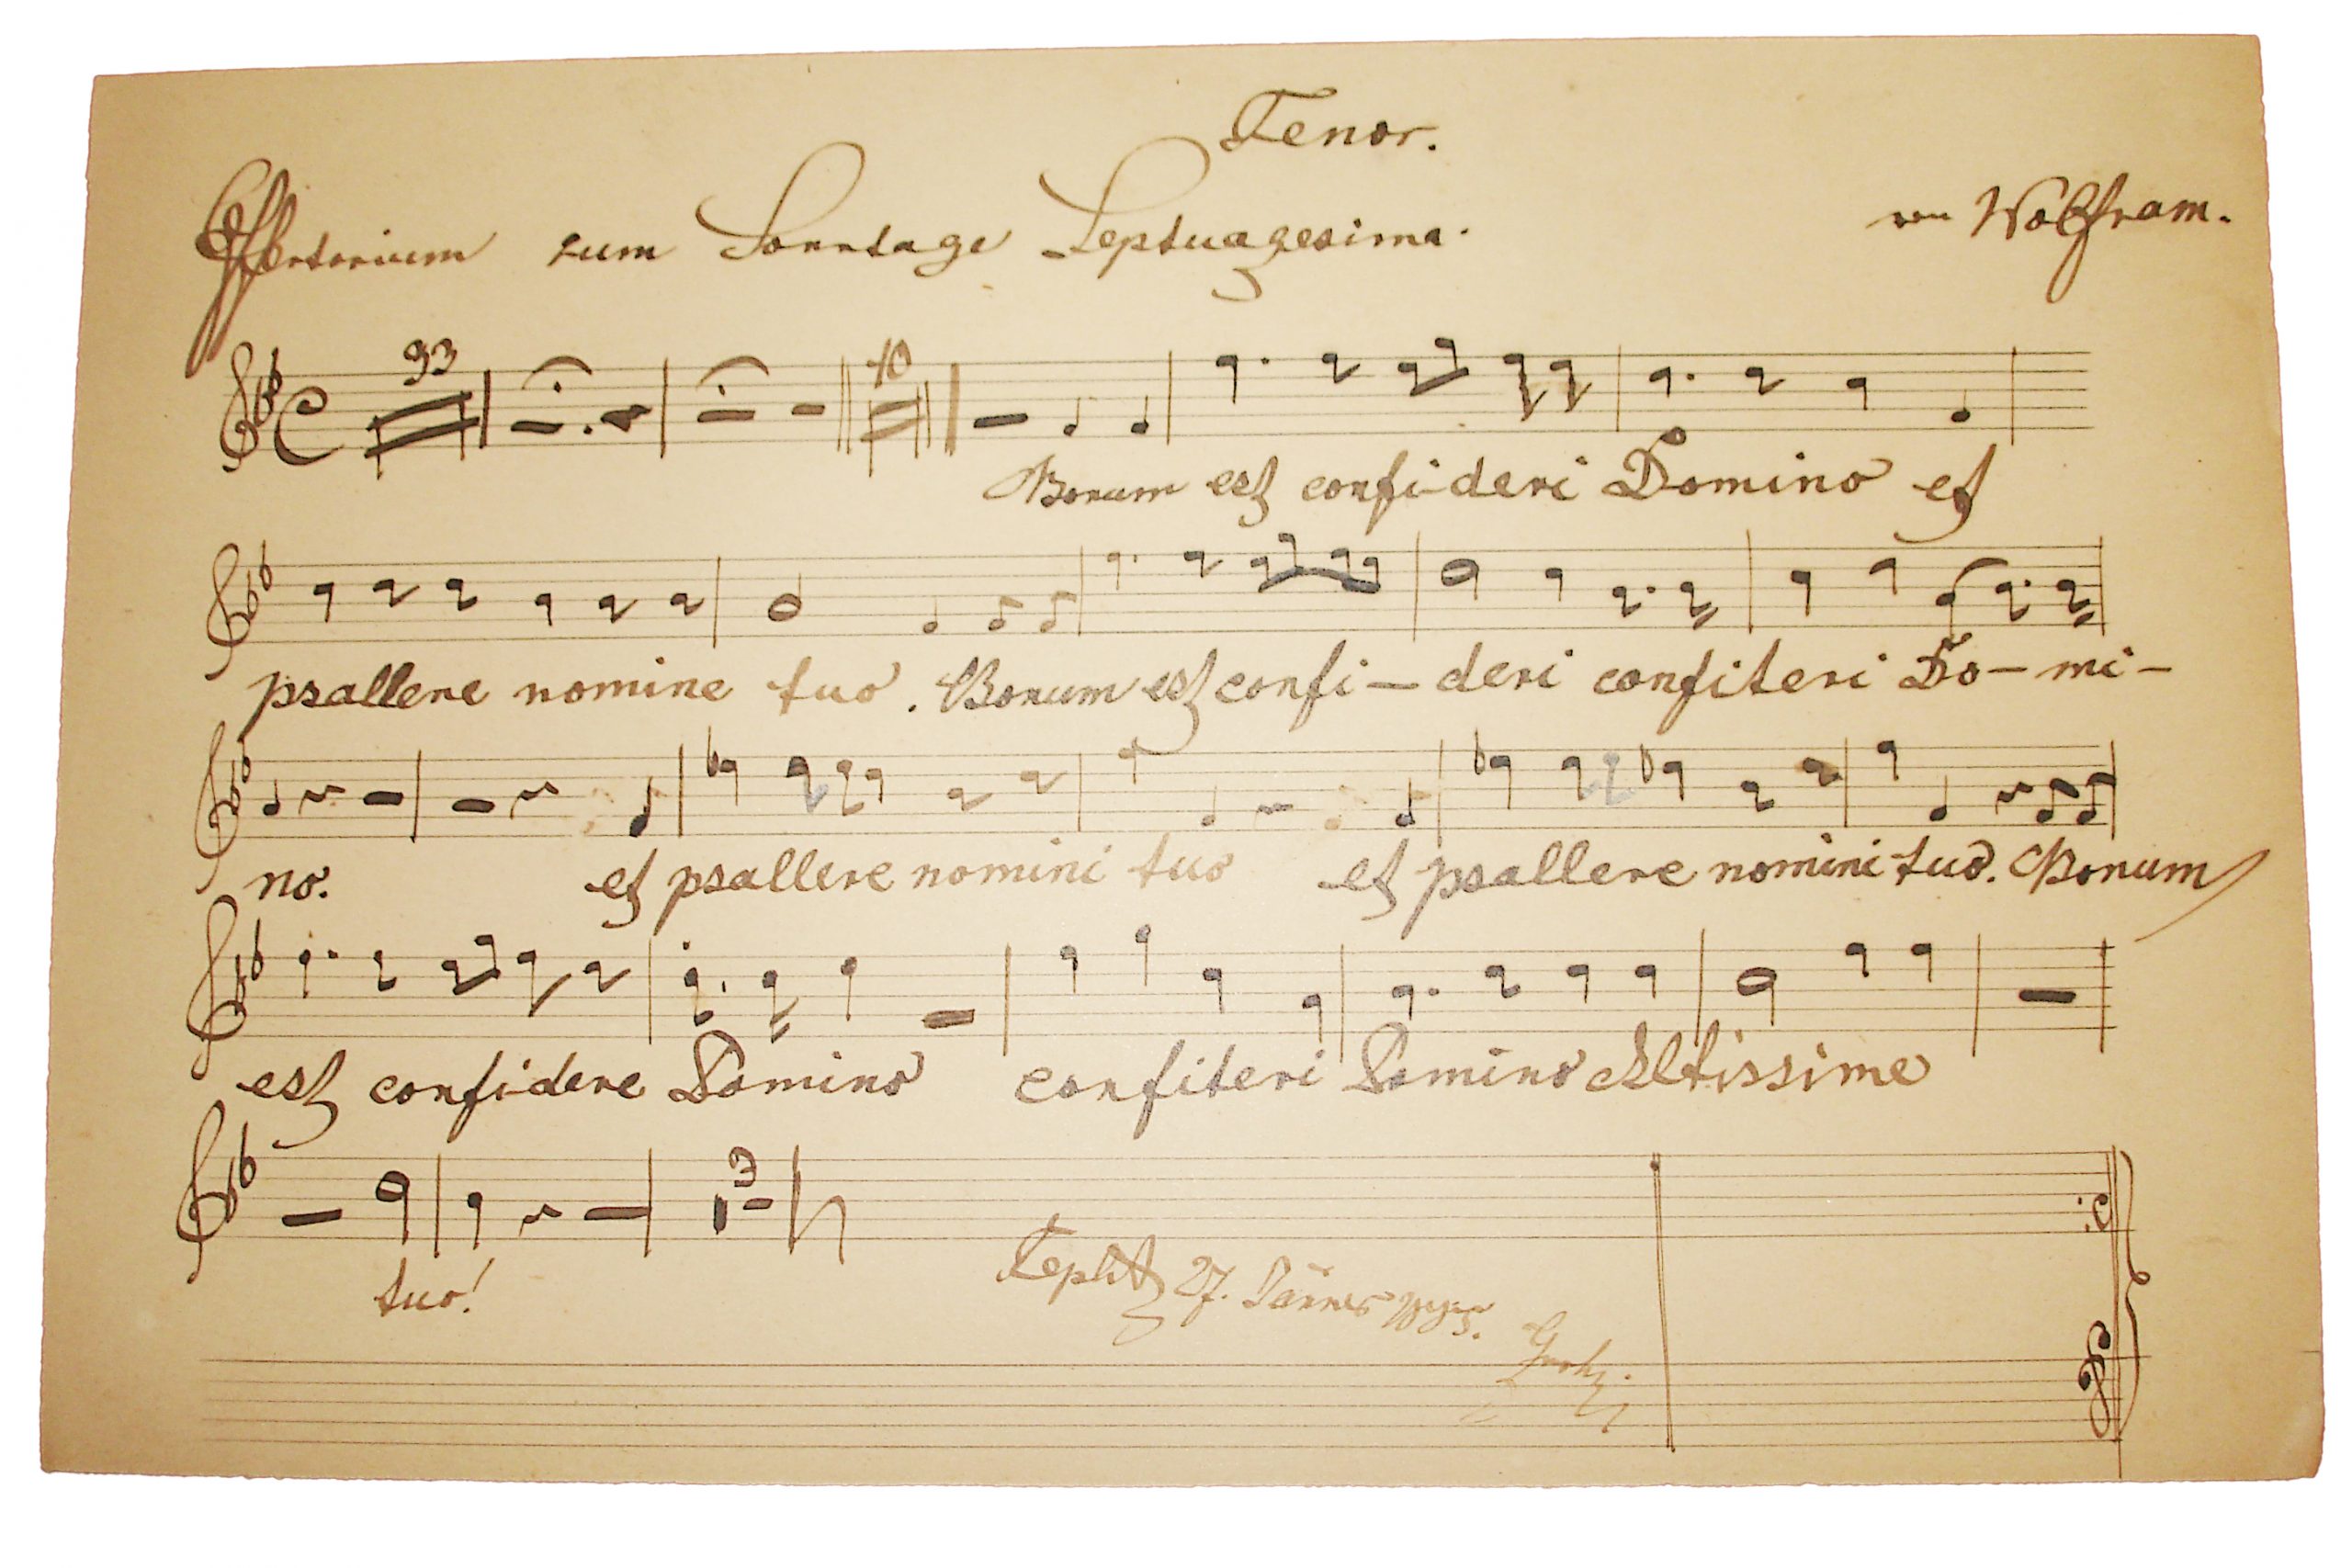 Tenor.
Offertorium zum Sonntage Septuagesima. von Wolfram.
93 10
Bonum est confi-deri Domino et
psallere nomine tuo. Bonum est confi-deri confiteri Do-mi-
no. et psallere nomini tuo et psallere nomini tuo. Bonum
est confidere Domino confiteri Domino Altissime
3
tuo!
Teplitz 27. Jänner